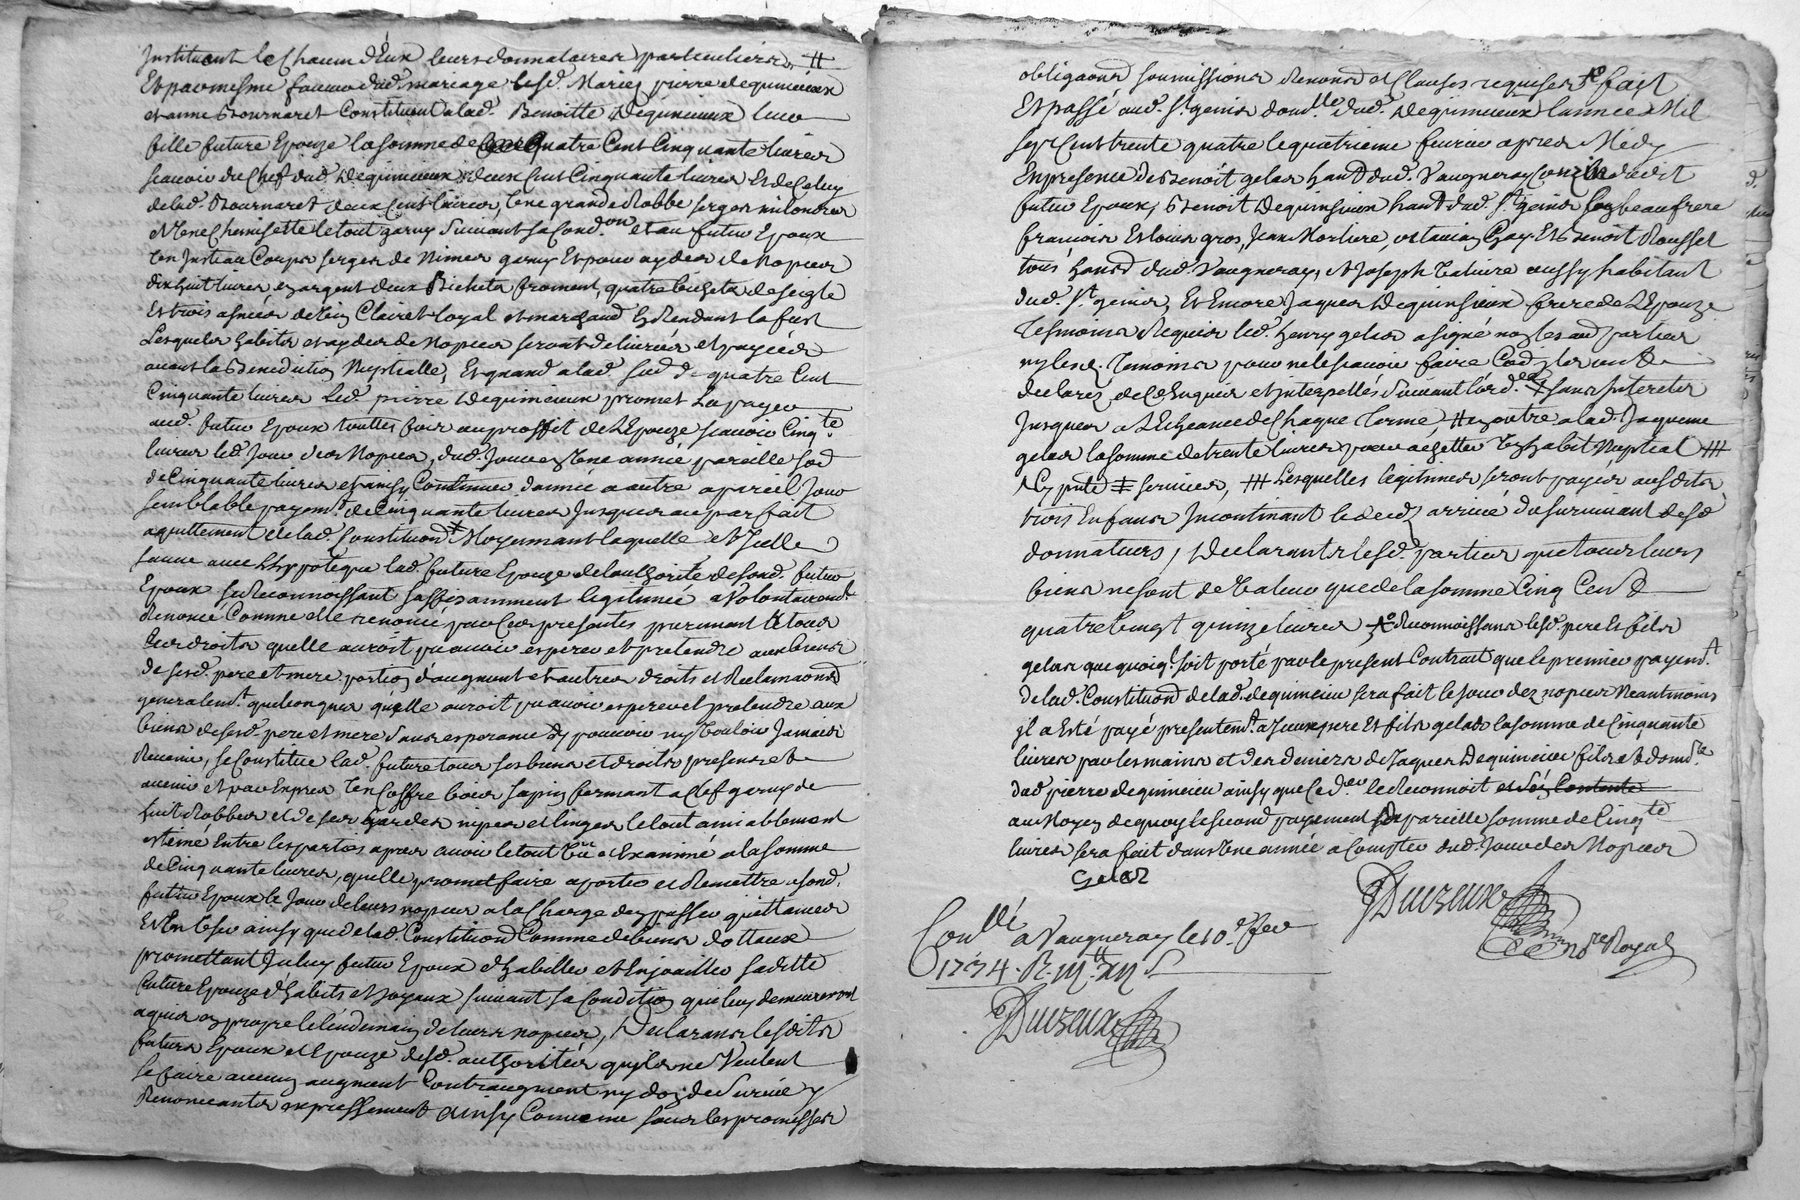 Instituant le Chacun d'Eux leurs donnataires particuliers #
Et par mesme faveur dud. mariage lesd. Mariez pierre dequincieux
et anne Bournaret Constituent a lad. Benoitte Dequincieux leur
fille future Epouze la somme de quatre Cent Cinquante livres
scavoir du Chef dud. Dequincieux deux Cent Cinquante livres Et de Celuy
de lad. Bournaret deux Cens livres, Une grande Robbe serges
et Une Chemisette le tout garny Suivant sa Condon et au futur Epoux
Un Justeau Corps serges de Nimes garny Et pour aydes de Nopces
dix huit livres en argent deux Bichets froment, quatre bichets de seigle
Et trois asnées de Vin Clairet loyal et marchand En Rendant la fust
Lesquels habits et aydes de Nopces seront delivrés et payées
avant la Benediction Nuptialle, Et quand a lad. sud. de quatre Cent
Cinquante livres led. pierre Dequincieux promet La payer
aud. futur Epoux touttes fois au proffit de L'Epouze scavoir Cinqte
livres led. Jour des Nopces, dud. Jour en Une année pareille sode
de Cinquante livres et ainsy Continuer d'année a autre a pareil Jour
semblable payemt de Cinquante livres Jusques au parfait
aquittement de lad. Constituon Moyennant laquelle et Icelle
sauve avec L'hypoteque lad. future Epouze de l'authorité de sond. futur
Epoux se Reconnoissant suffisamment legitimée a Volontairemt
Renoncé Comme elle renonce par Ces presentes purement a tous
les droits quelle auroit pu avoir esperer et pretendre aux biens
de sesd. pere et mere portion d'augment et autres droits et Reclamaons
generalemt quelconques qu'elle auroit pu avoir esperer et pretendre aux
biens de sesd. pere et mere sans esperance d'y pouvoir ny Vouloir Jamais
Revenir, se Constitue lad. future tous ses biens et droits presens et a
avenir et par Exprès Un Coffre bois sapin fermant a Clef garny de
huit Robbes et de ses hardes nipes et linges le tout amiablement
estimé Entre les parties apres avoir le tout Vu et Examiné a la somme
de Cinquante livres, quelle promet faire aporter et Remettre a sond.
futur Epoux le Jour de leurs nopces a la Charge d'en passer quittances
Et En user ainsy que de lad. Constitution Comme de biens dottaux
promettant Iceluy futur Epoux d'habiller et Enjoailler sa ditte
future Epouze d'habits et Joyaux suivant sa Condition qui luy demeureront
aquis en propre le lendemain de leurs nopces, Declarans lesdits
futurs Epoux et Epouze desd. authorités qu'ils ne Veulent
se faire aucun augment Contraugment ny don de Survie y
Renonceants expressement ainsy Convenu sous les promesses
obligaons soumissions Renons et Clauses requises fait
Et passé aud. St genis domlle dud. Dequincieux l'année Mil
sept Cent trente quatre le quatrieme fevrier apres Midy
En presence de Benoit gelas habt dud. Vaugneray Cousin dudit
futur Epoux, Benoit Dequinsieux habt dud. St genis son beaufrere
francois Et louis gros, Jean Morliere, et Benoit Rousset
tous habs dud. Vaugneray, et Joseph aussy habitant
dud. St genis, Et Encore Jaques Dequinsieux frere de L'Epouze
Tesmoins Requis led. henry gelas a signé non les aud. parties
ny lesd. Temoins pour ne le scavoir faire Comme ils ont
declaré de Ce Enquis et Interpellés suivant l'orde sans Interets
Jusques a L'Echeance de Chaque Terme, # en outre a lad. Jaqueme
gelas la somme de trente livres pour achetter Un habit Nuptial ##
services, ## Lesquelles legitimes seront payées ausdits
trois Enfans Incontinant le deces arrivé du survivant desd
donnateurs, Declarants lesd. parties que tous leurs
biens ne sont de Valeur que de la somme Cinq Cent
quatre Vingt quinze livres Reconnoissans lesd. pere Et fils
gelas que quoiq. soit porté par le present Contrait que le premier payemt
de lad. Constituon de lad. dequincieu sera fait le Jour dez nopces Neantmoins
il a Esté payé presentemt a Iceux pere Et fils gelas la somme de Cinquante
livres par les mains et des deniers de Jaques Dequincieu fils et
dud pierre dequincieu ainsy que Ce der le Reconnoit et s'en Contente
au Moyen de quoy le second payement de pareille somme de Cinqte
livres sera fait dans Une année a Compter dud. Jour des Nopces
Gelas
Duvzeux
nore Royal
Conllé a Vaugneray le 10e. fev
1734. R.
Duvzeux